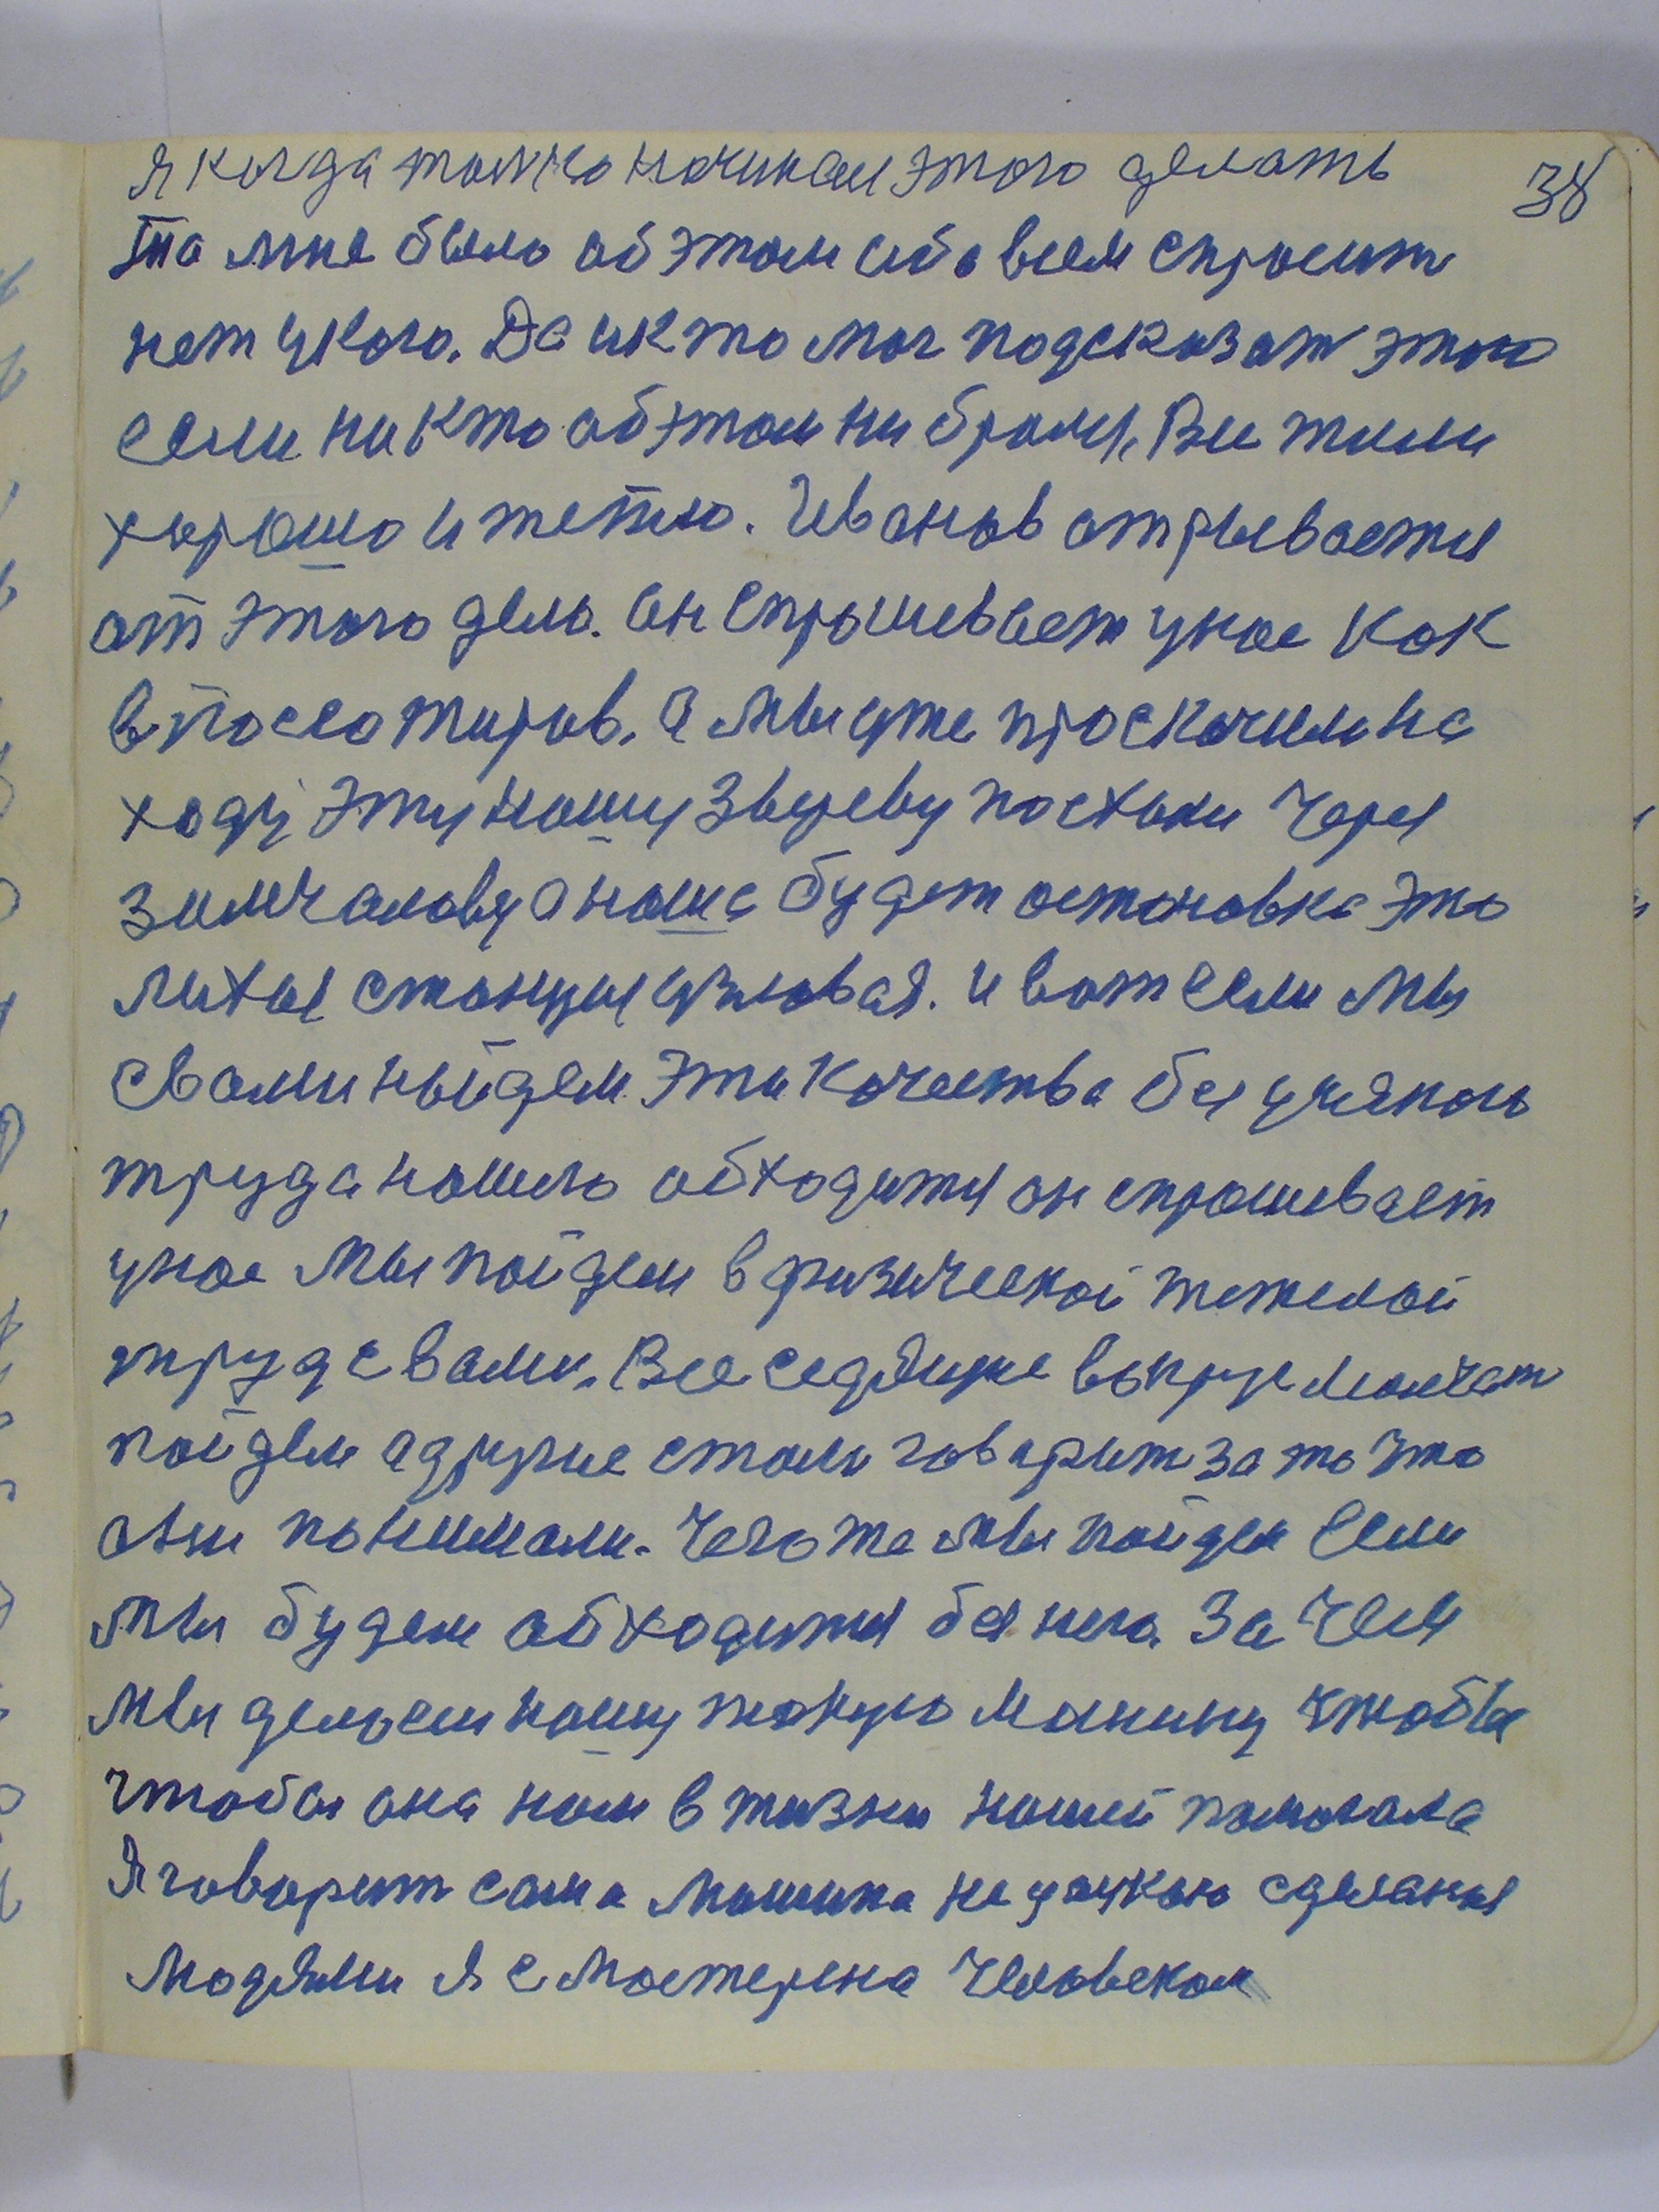 я когда только начинал этого делать 38
то мне было об этом и обо всем спросить
нет укого. Да и кто мог подсказать этого
если ни кто об этом ни брался. Все жили
хорошо и тепло. Иванов отрывается
от этого дела. он спрошевает унас как
в пассажиров. а мы уже проскочили на
ходу эту нашу Звереву послали через
зимчалову а наша будет остановка это
лихая станция узловая. и вот если мы
свами найдем эти качества без усякого
труда нашего обходится он спрошевает
унас мы пойдем в физической тежелой
труд свами. Все седящие вокруг молчат
пойдем адругие стали говорит за то что
они понимали. Чего же мы пойдем если
мы будем обходится без него. За чем
мы делаем нашу такую машину чтобы
чтобы она нам в жизни нашей помогала
Я говорит сама машина не усякою сделаная
людями я смастерена человеком